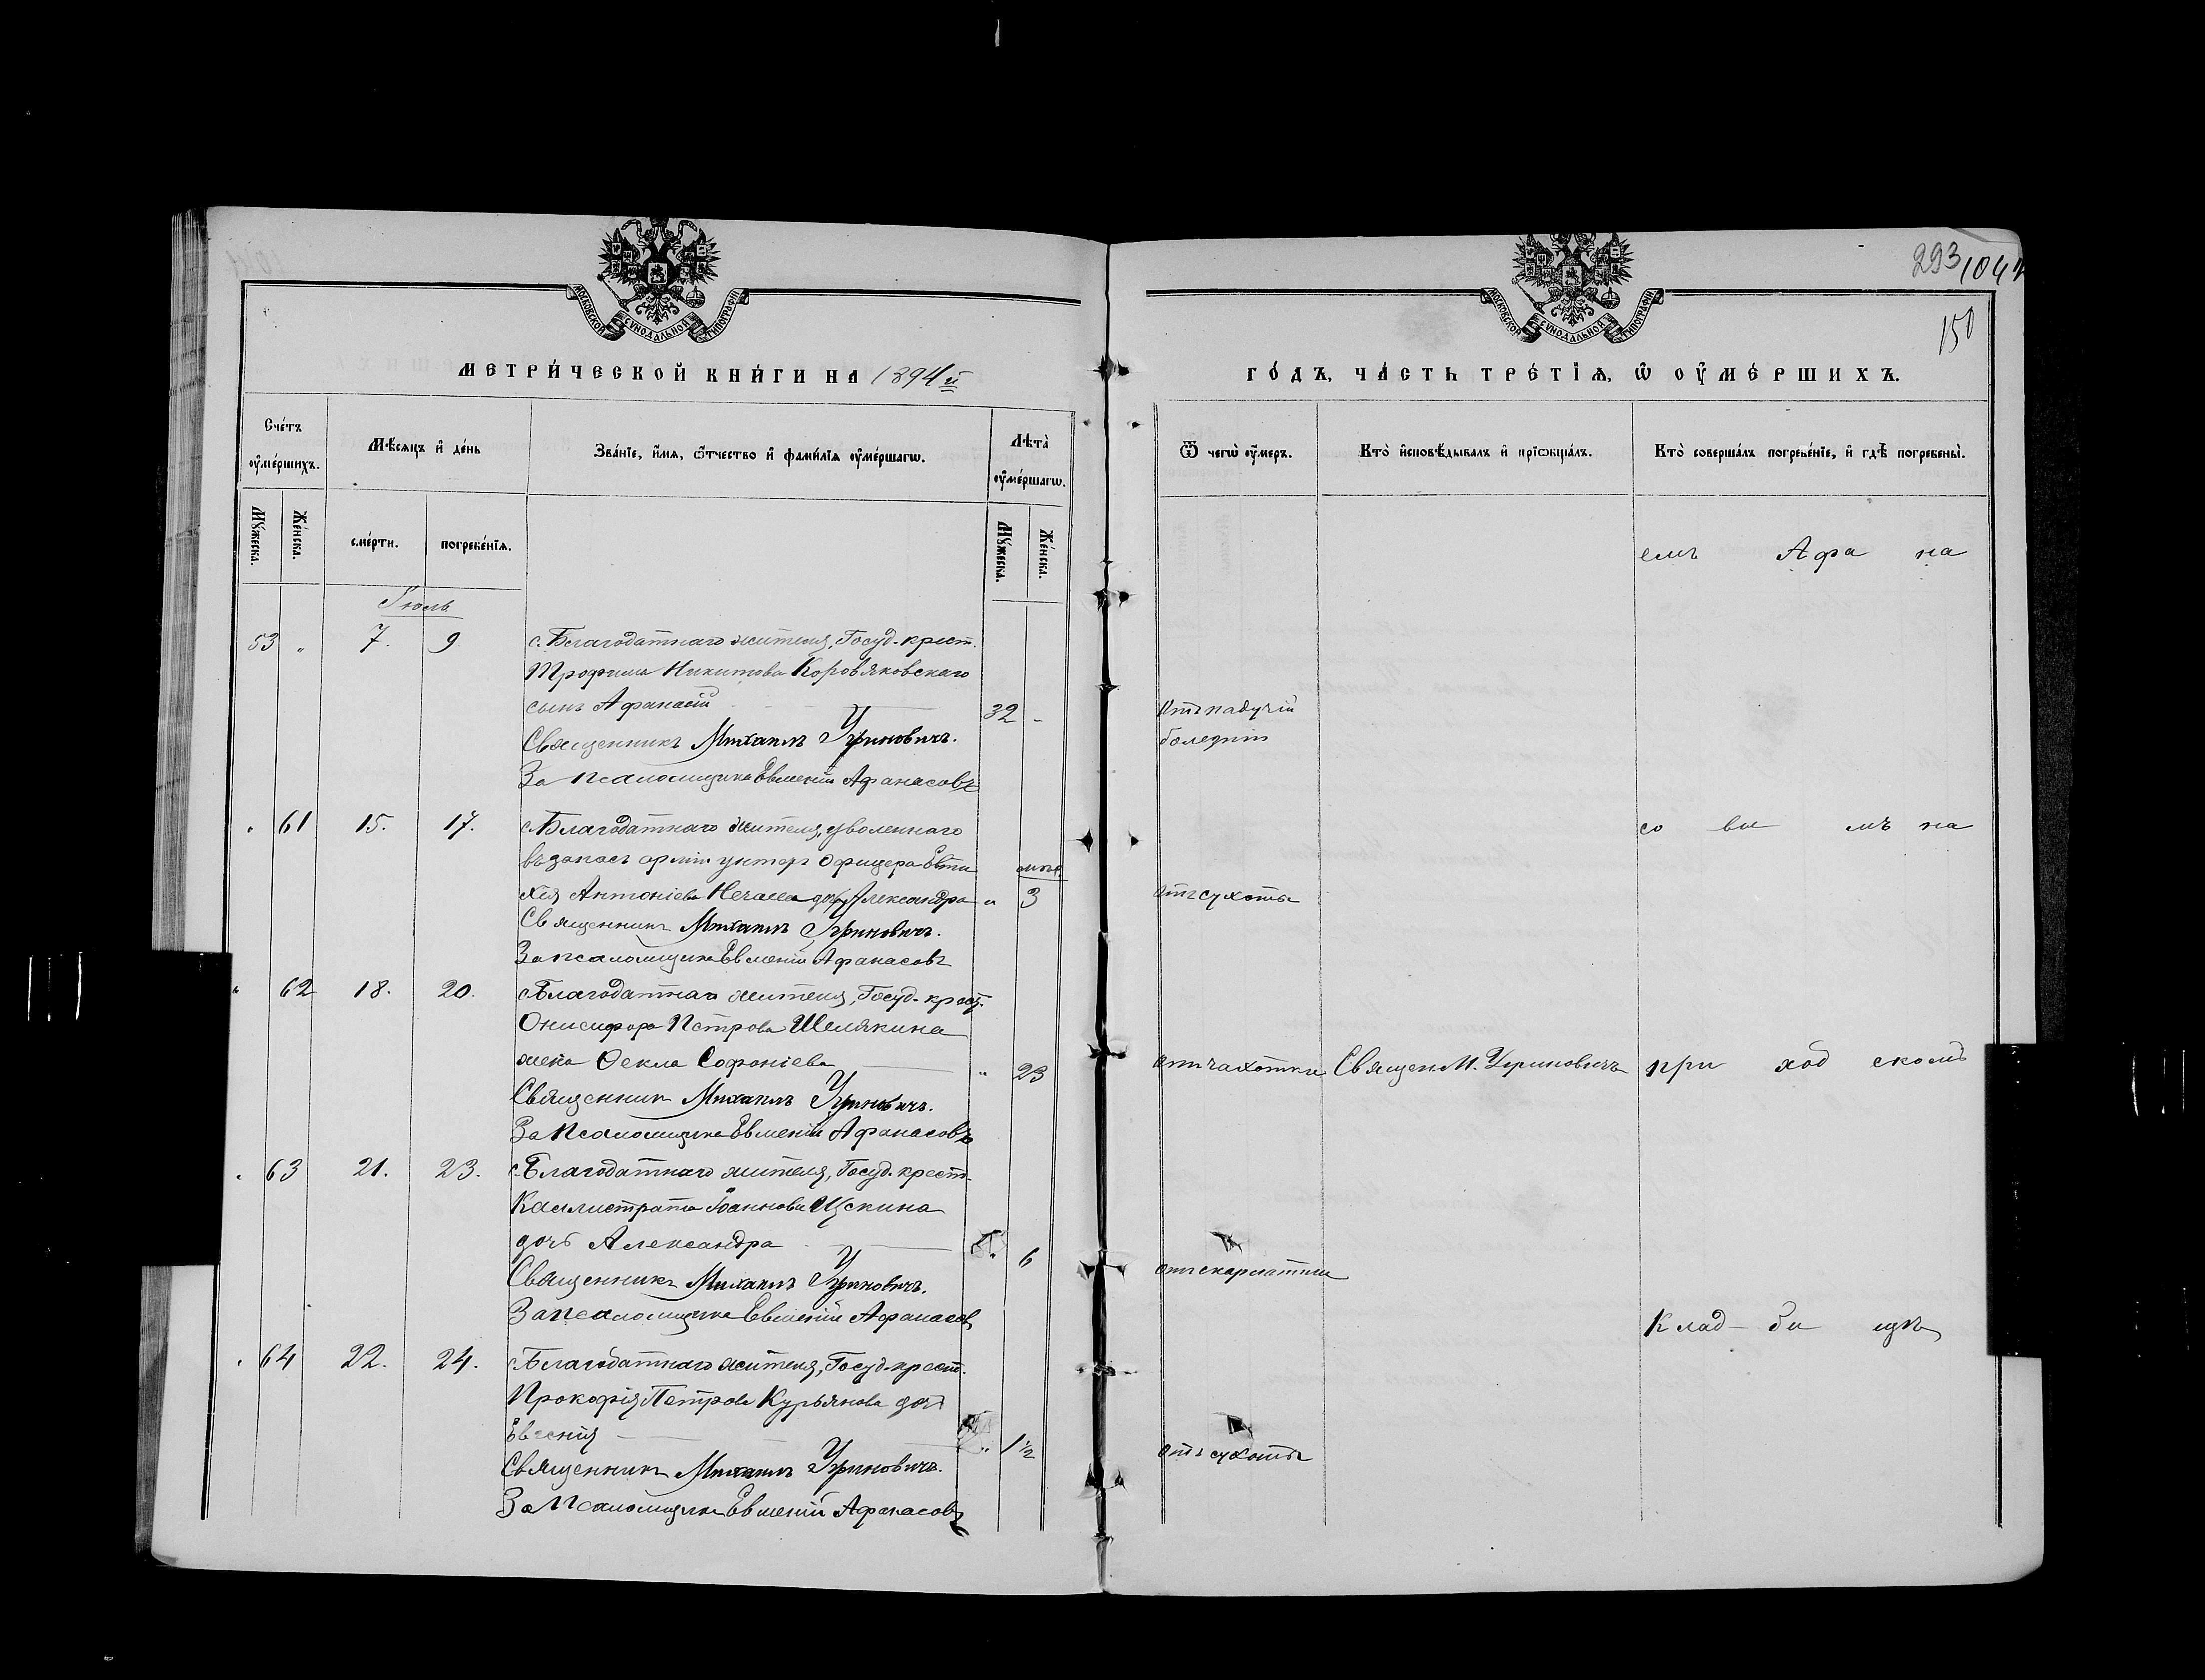 293 1047
150
МОСКОВСКОЙ СѴНОДАЛЬНОЙ ТИПОГРАФІИ
МЕТРИ́ЧЕСКОЙ КНИ́ГИ НА 1894й
Сче́тъ ᲂу҆ме́ршихъ.
Мѣ́сяцъ и҆ де́нь
Зва́нїе, и҆́мя, ѻ҆́тчество и҆ фами́лїя ᲂу҆ме́ршагѡ.
Лѣта̀ ᲂу҆ме́ршагѡ.
Мꙋ́жеска.
Же́нска.
сме́рти.
погребе́нїя.
Мꙋ́жеска.
Же́нска.
Іюль
53 " 7. 9 с. Благодатнаго жителя, Госуд. крест.
Трофима Никитова Коровяковскаго
сынъ Афанасій 32 -
Священникъ Михаилъ Угриновичъ.
За псаломщика Евменій Афанасовъ
" 61 15. 17. с. Благодатнаго жителя, уволеннаго
въ запасъ арміи унтеръ офицера Евти
хія Антоніева Нечаева дочь Александра " мѣс. 3
Священникъ Михаилъ Угриновичъ.
За псаломщика Евменій Афанасовъ
" 62 18. 20. с. Благодатнаго жителя, Госуд. крест.
Онисифора Петрова Шелякина
жена Ѳекла Софоніева " 23
Священникъ Михаилъ Угриновичъ.
За псаломщика Евменій Афанасовъ
" 63 21. 23. с. Благодатнаго жителя, Госуд. крест.
Каллистрата Іоаннова
дочь Александра " 6
Священникъ Михаилъ Угриновичъ.
За псаломщика Евменій Афанасов
" 64 22. 24. с. Благодатнаго жителя, Госуд. крест.
Прокофія Петрова Курьянова дочь
Евгенія " 1½
Священникъ Михаилъ Угриновичъ.
За псаломщика Евменій Афанасовъ
МОСКОВСКОЙ СѴНОДАЛЬНОЙ ТИПОГРАФІИ
ГО́ДЪ, ЧА́СТЬ ТРЕ́ТІѦ, Ѡ҆ ОУ҆МЕ́РШИХЪ.
Ѿ чегѡ̀ ᲂу҆́меръ.
Кто̀ и҆сповѣ́дывалъ и҆ прїѡбща́лъ.
Кто̀ соверша́лъ погребе́нїе, и҆ гдѣ̀ погребены̀.
емъ Афа на
Отъ падучій
болезніи
со вы мъ на
отъ сухоты
отъ чахотки Священ М. Угриновичъ при ход скомъ
отъ скарлатины
клад- би щѣ
отъ сухоты